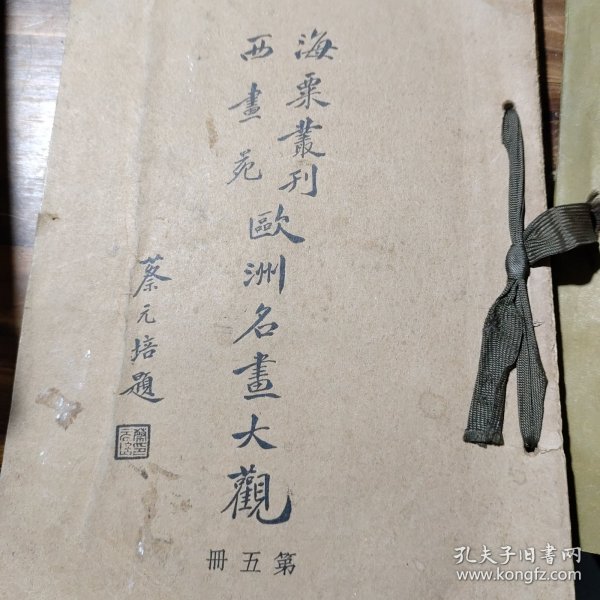 海粟叢刊
西畫苑
歐洲名畫大觀
蔡元培題
第五冊
孔夫子旧書网
www.kongfz.com